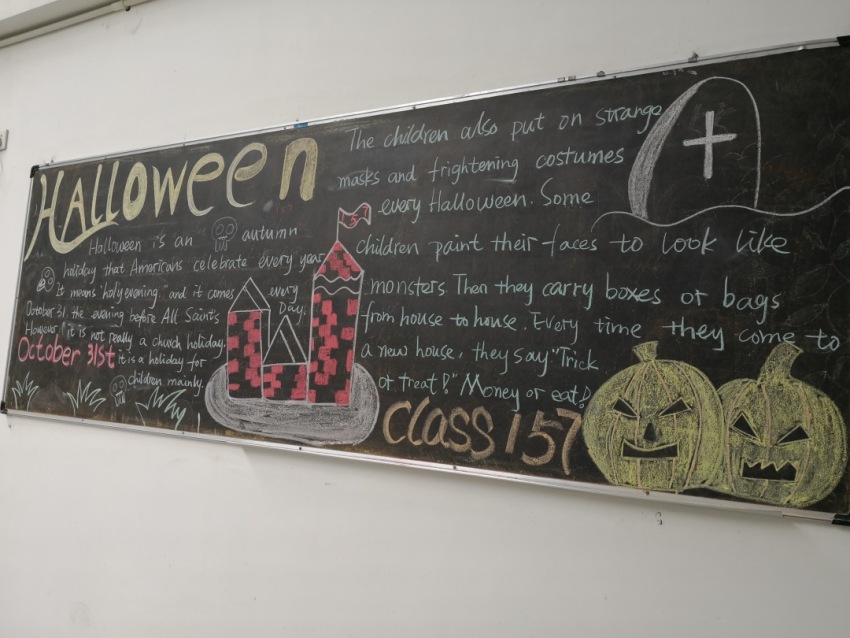 Halloween
Halloween is an autumn
holiday that Americans celebrate every year
It means "holy evening." and it comes every
October 31. the evening before All Saints Day.
However, it is not really a church holiday,
October 31st it is a holiday for
children mainly.
57
The children also put on strange
masks and frightening costumes
every Halloween. Some
children paint their faces to look like
monsters. Then they carry boxes or bags
from house to house. Every time they come to
a new house, they say "Trick
or treat!" Money or eat!
Class 157